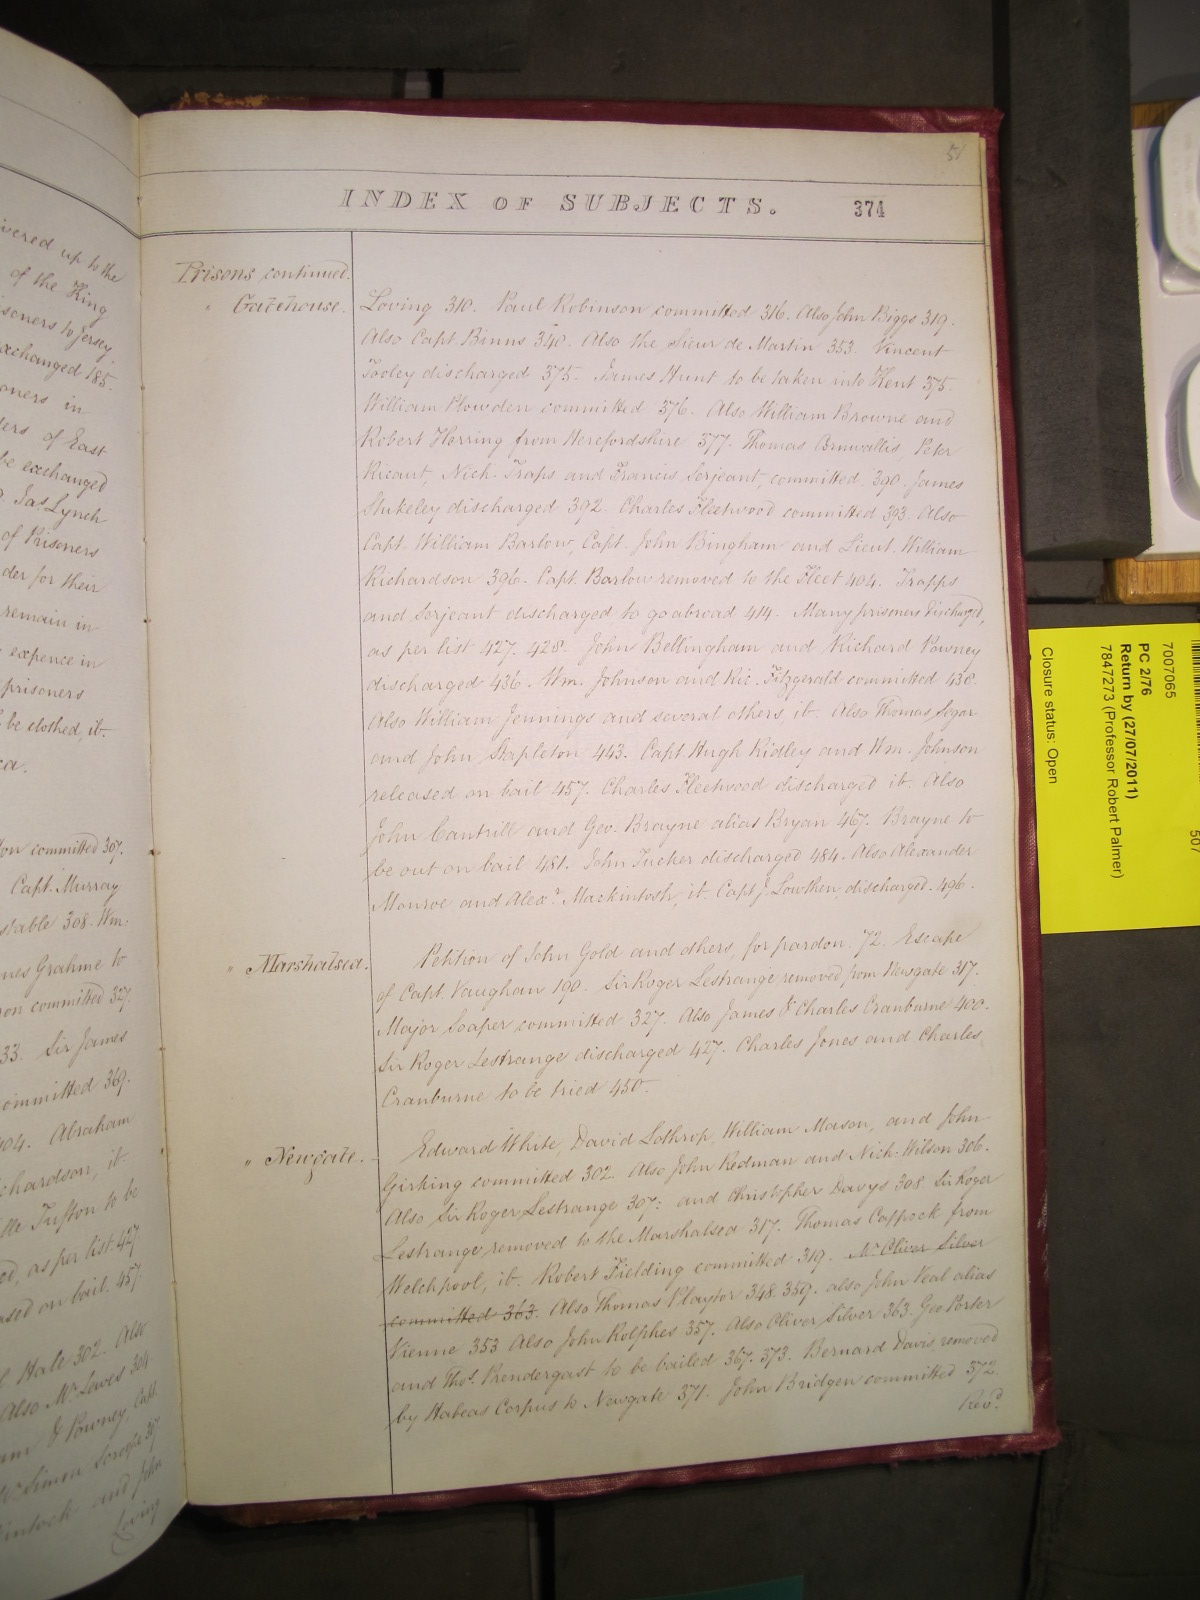 vered up to the
of the King
isoners to Jersey.
exchanged 185.
oners in
ders of East
be exchanged
Jas. Lynch
of Prisoners
der for their
remain in
expence in
prisoners
be clothed, ib.
on committed 307.
Capt. Murray
stable 308. Wm.
mes Grahme to
on committed 327.
33. Sir James
ommitted 369.
404. Abraham
chardson, it.
lle Tufton to be
ed, as per list 427
ased on bail. 457.
Hale 302. Also
Also Mr. Lowes 304.
& Powney, Capt.
Simon Scroope 307.
intosh and John
Loving
51
INDEX OF SUBJECTS. 374
Prisons continued.
" Gatehouse.
Loving 310. Paul Robinson committed 316. Also John Biggs 319.
Also Capt. Binns 340. Also the Sieur de Martin 353. Vincent
Tooley discharged 375. James Hunt to be taken into Kent 375.
William Plowden committed 376. Also William Browne and
Robert Herring from Herefordshire 377. Thomas Cornwallis, Peter
Ricaut, Nich. Traps and Francis Serjeant, committed. 390. James
Stukeley discharged 392. Charles Fleetwood committed 393. Also
Capt. William Barlow, Capt. John Bingham and Lieut. William
Richardson 396. Capt. Barlow removed to the Fleet 404. Trapps
and Serjeant discharged to go abroad 414. Many prisoners discharged,
as per list 427. 428. John Bellingham and Richard Powney
discharged 436. Wm. Johnson and Ric. Fitzgerald committed 438.
Also William Jennings and several others, it. Also Thomas Segar
and John Stapleton 443. Capt. Hugh Ridley and Wm. Johnson
released on bail 457. Charles Fleetwood discharged it. Also
John Cantrill and Geo. Brayne alias Bryan 467. Brayne to
be out on bail 481. John Tucker discharged 484. Also Alexander
Monroe and Alexr. Mackintosh, it. Capt J. Lowthen, discharged. 496.
" Marshalsea.
Petition of John Gold and others, for pardon. 72. Escape
of Capt. Vaughan 190. Sir Roger Lestrange removed from Newgate 317.
Major Soaper committed 327. Also James & Charles Cranburne 400.
Sir Roger Lestrange discharged 427. Charles Jones and Charles
Cranburne to be tried 450.
" Newgate.
Edward White, David Lothrop, William Mason, and John
Girking committed 302. Also John Redman and Nich. Wilson 306.
Also Sir Roger Lestrange 307: and Christopher Davys 308 Sir Roger
Lestrange, removed to the Marshalsea 317. Thomas Cappock from
Welchpool, it. Robert Fielding committed 319. Mr Oliver Silver
committed 363. Also Thomas Playter 348. 359. also John Veal alias
Vienne 353 Also John Rolphes 357. Also Oliver Silver 363. Geo Porter
and Thos. Prendergast to be bailed 367. 373. Bernard Davis, removed
by Habeas Corpus to Newgate 371. John Bridgen committed 372.
Revd.
7007065
507
PC 2/76
Return by (27/07/2011)
7847273 (Professor Robert Palmer)
Closure status: Open